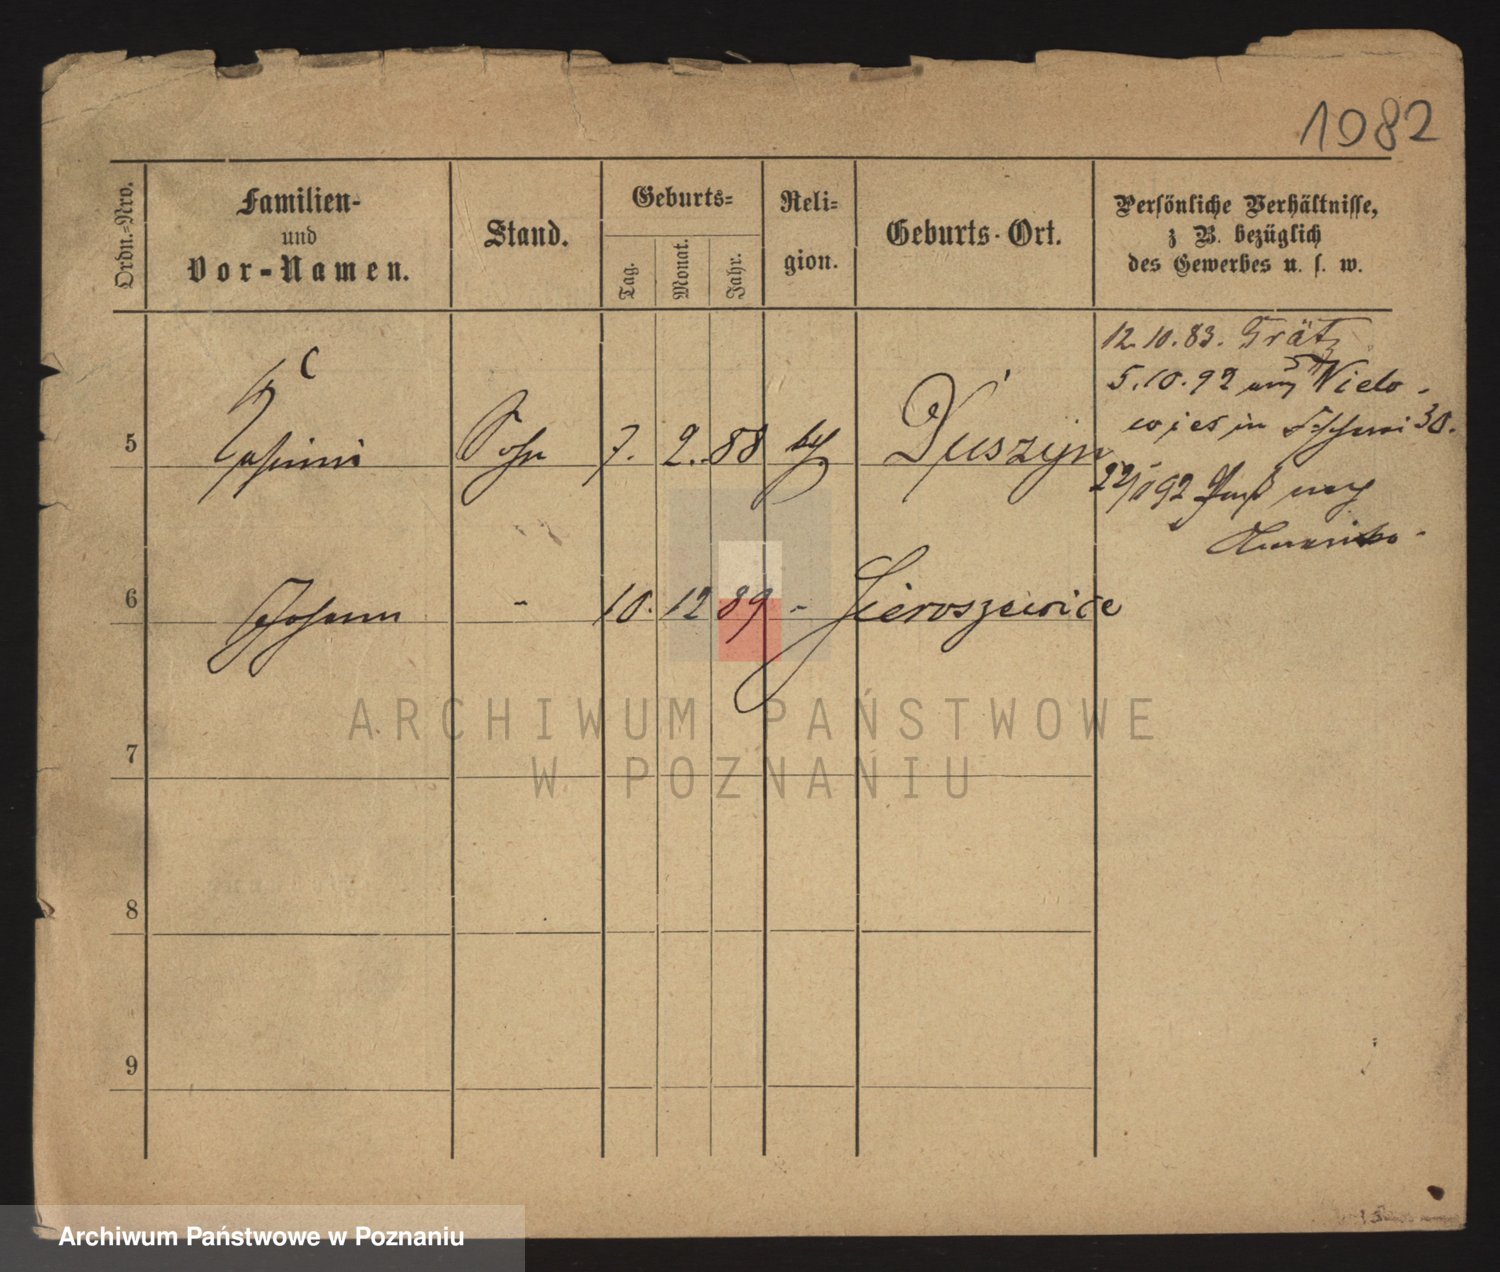 1082
Ordn.-Nro.
Familien-
und
Vor-Namen.
Stand.
Geburts-
Tag.
Monat.
Jahr.
Reli-
gion.
Geburts-Ort.
Persönliche Verhältnisse,
z B. bezüglich
des Gewerbes u. s. w.
12.10.83. Grätz
5.10.92
Wielo
wies in
30.
5
Sohn
7. 2. 88
Duszyn
92 Paß nach
Amerika.
6
Johann
-
10. 12 89
-
Sieroszewice
7
8
9
ARCHIWUM PAŃSTWOWE
W POZNANIU
Archiwum Państwowe w Poznaniu